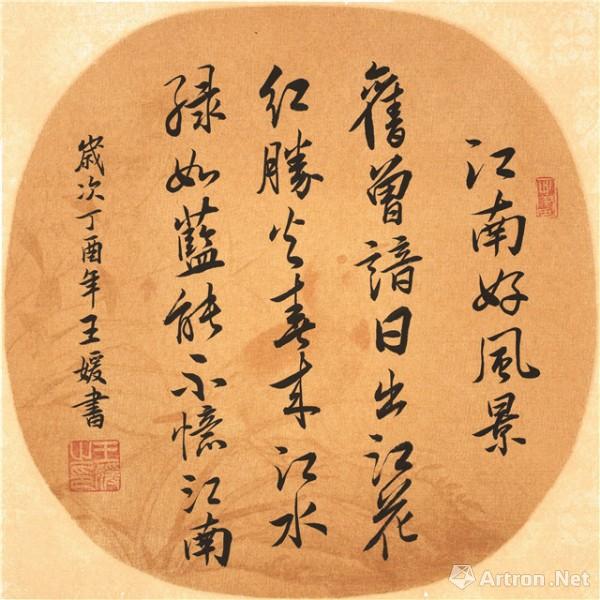 江南好風景
舊曾諳日出江花
红勝火春来江水
绿如藍能不憶江南
歲次丁酉年王媛書
Artron.Net